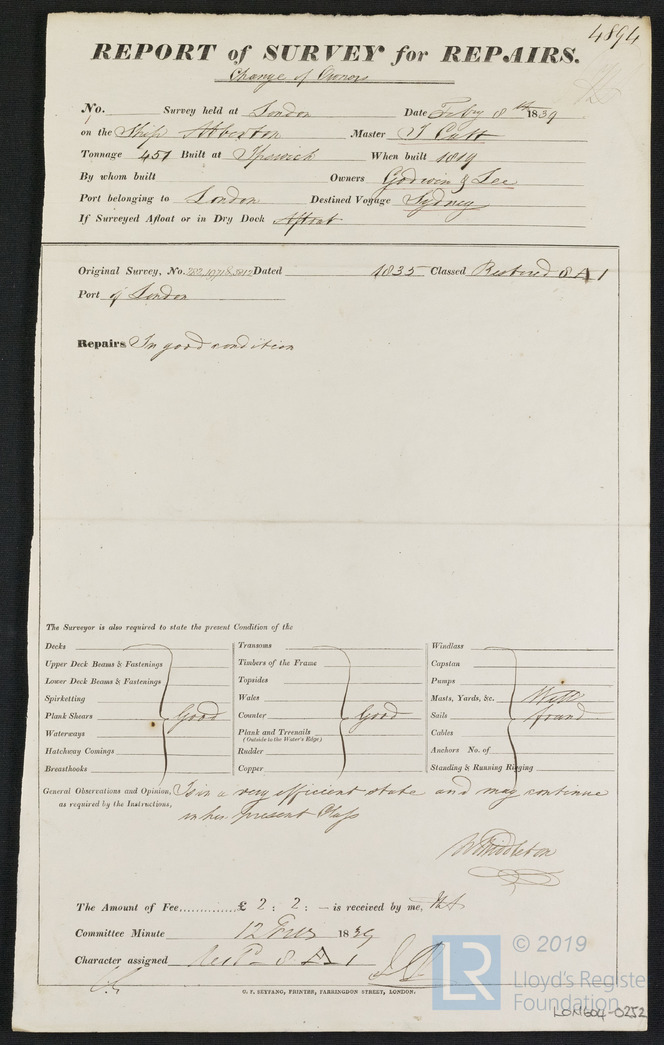 4894
REPORT of SURVEY for REPAIRS.
Change of Owners
No. Survey held at London Date Feby 8th 1839
on the Ship Abberton Master T Cutt
Tonnage 451 Built at Ipswich When built 1819
By whom built Owners Godwin & Lee
Port belonging to London Destined Voyage Sydney
If Surveyed Afloat or in Dry Dock Afloat
Original Survey, No. Dated 1835 Classed Restored 8 A 1
Port of London
Repairs In good condition
The Surveyor is also required to state the present Condition of the
Decks Transoms Windlass
Upper Deck Beams & Fastenings Timbers of the Frame Capstan
Lower Deck Beams & Fastenings Topsides Pumps
Spirketting Wales Masts, Yards, &c. Well
Plank Shears Good Counter Good Sails found
Waterways Plank and Treenails Cables
(Outside to the Water's Edge)
Hatchway Comings Rudder Anchors No. of
Breasthooks Copper Standing & Running Rigging
General Observations and Opinion, Is in a very efficient state and may continue
as required by the Instructions, in her present Class
W Middleton
The Amount of Fee.............. £ 2 : 2 : — is received by me,
Committee Minute 12 1839
Character assigned 8 A 1
G. F. SEYFANG, PRINTER, FARRINGDON STREET, LONDON.
LR
© 2019
Lloyd's Registe
Foundation
LON604-0252